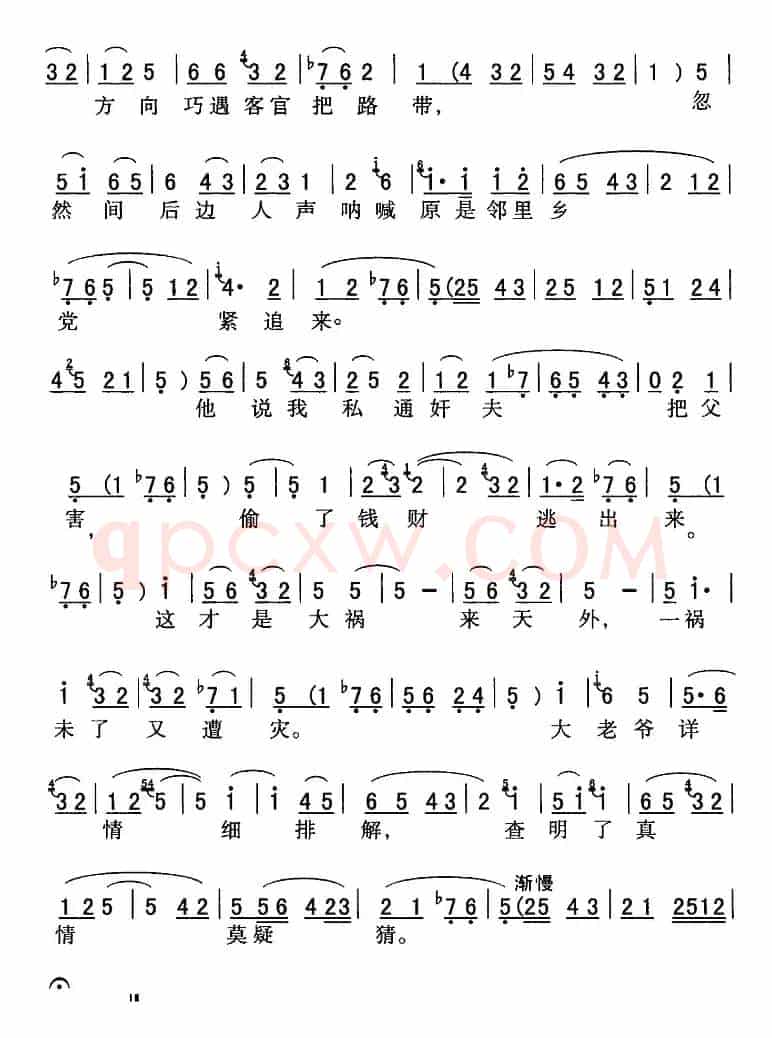 32 | 125 | 66 432 | ♭762 | 1 (4 32 | 54 32 | 1 ) 5 |
方向 巧遇客官把路带， 忽
5i 65 | 6 43 | 231 | 2 i6 | 6i·i ii2 | 65 43 | 2 12 |
然间后边人声呐喊原是邻里乡
♭765 | 5 12 | i4· 2 | 12♭76 | 5(25 43 | 25 12 | 51 24 |
党 紧追来。
425 21 | 5 ) 56 | 5 643 | 25 | 12 1♭7 | 65 43 | 02 1 |
他说我私通奸夫 把父
5 (1 | ♭76 | 5 ) 5 | 5 1 | 2343 | 2 432 | 1·2 ♭76 | 5 (1
害， 偷了钱财 逃出来。
qpcxw.COM
♭76 | 5 ) i | 56 432 | 5 5 | 5 – | 56 432 | 5 – | 5 i· |
这才是大祸 来天外，一祸
i 432 | 432 ♭71 | 5 (1 | ♭76 | 56 24 | 5 ) i | i6 5 | 5·6
未了又遭灾。 大老爷详
432 | 12545 | 5 i | i 45 | 65 43 | 2 5i | 5i6i | 65 432 |
情 细 排解， 查明了真
渐慢
125 | 5 42 | 5 56 423 | 21 ♭76 | 5(25 43 | 21 2512 |
情 莫疑 猜。